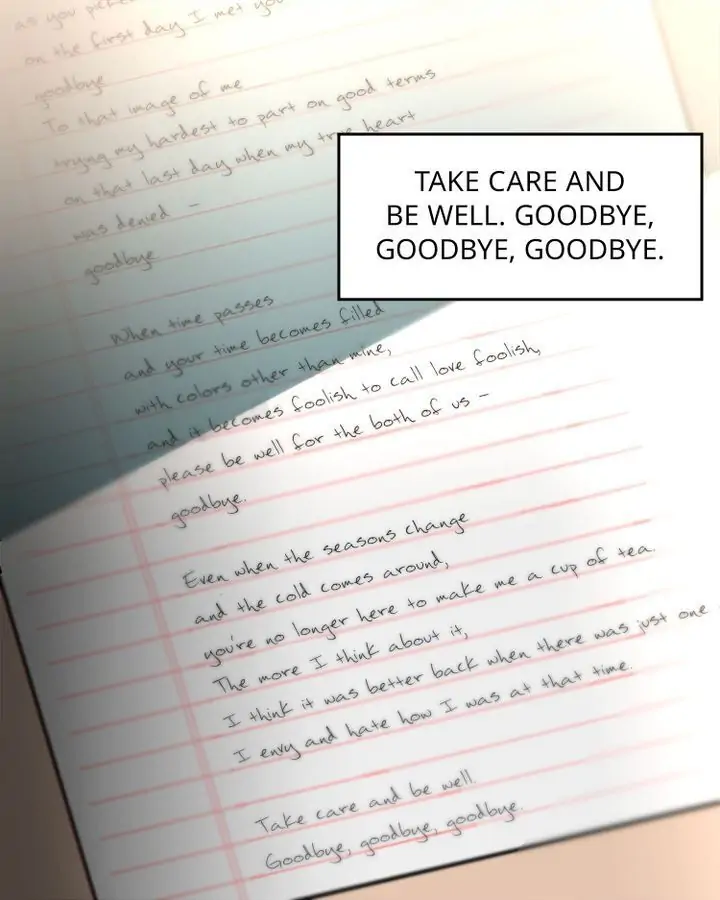 as you picked
on the first day I met you
goodbye
To that image of me
trying my hardest to part on good terms
on that last day when my true heart
was denied –
goodbye
TAKE CARE AND
BE WELL. GOODBYE,
GOODBYE, GOODBYE.
When time passes
and your time becomes filled
with colors other than mine,
and it becomes foolish to call love foolish,
please be well for the both of us –
goodbye.
Even when the seasons change
and the cold comes around,
you're no longer here to make me a cup of tea.
The more I think about it,
I think it was better back when there was just one
I envy and hate how I was at that time.
Take care and be well.
Goodbye, goodbye, goodbye.